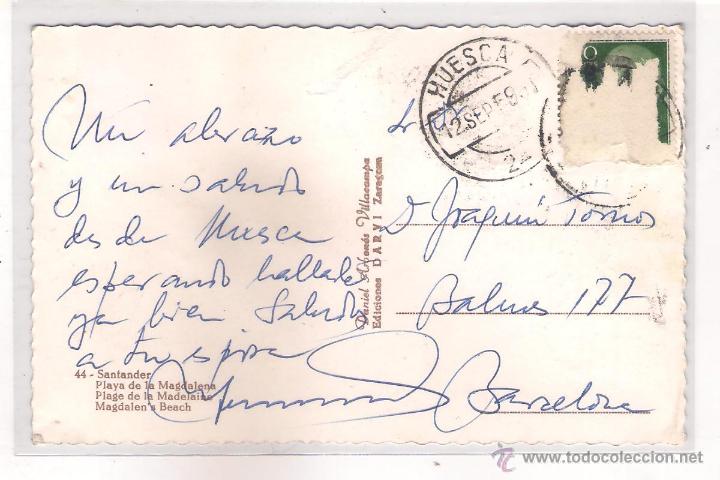 Un abrazo
y un saludo
desde Huesca
esperando hallada
ya bien Saludos
a tu esposa
44 - Santander
Playa de la Magdalena
Plage de la Madelaine
Magdalen's Beach
Daniel Arbonés Villacampa
Ediciones DARVI Zaragoza
HUESCA
12 SEP
Sr.
D Joaquín Tornos
Balmes 177
Barcelona
todocoleccion
www.todocoleccion.net